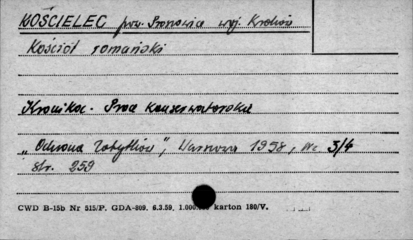 KOŚCIELEC pow. Proszowice woj. Kraków
Kościół romański
Kronika. Prace konserwatorskie
"Ochrona Zabytków", Warszawa 1958, Nr 3/4
str. 259
CWD B-15b Nr 515/P. GDA-809. 6.3.59, 1.000.000 karton 180/V.